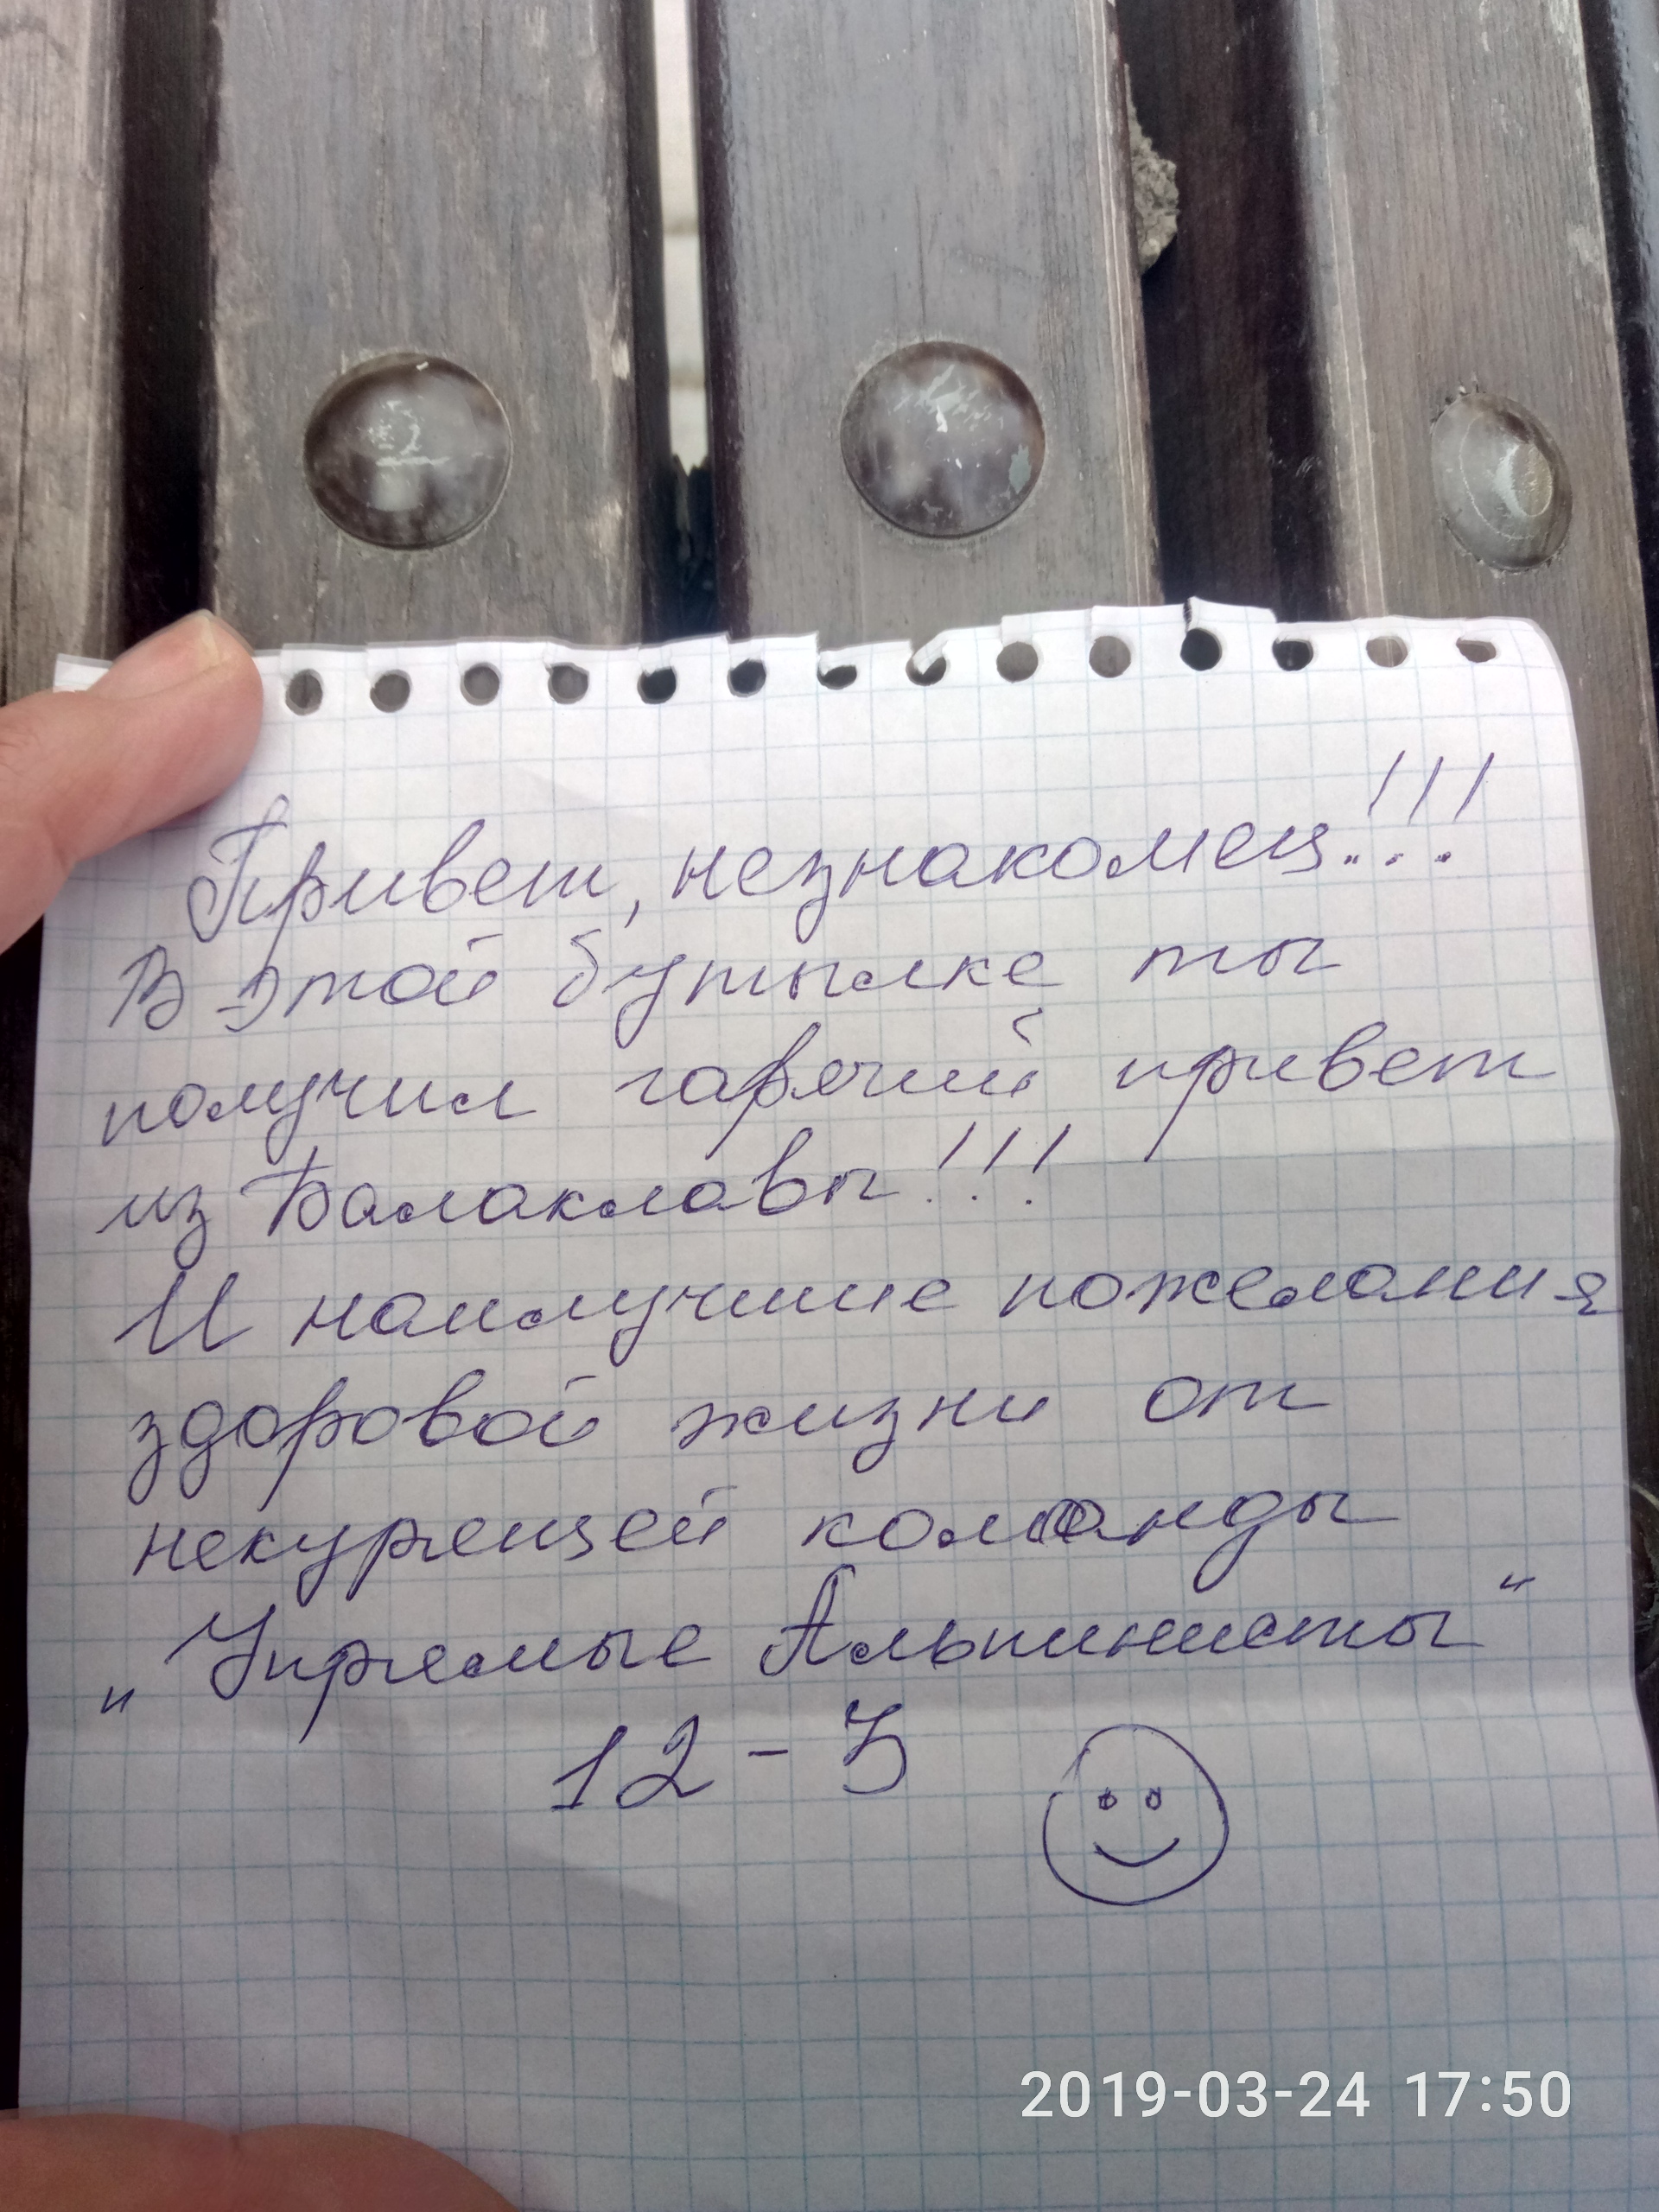 Привет, незнакомец!!!
В этой бутылке ты
получил гарячий привет
из Балаклавы!!!
И наилучшие пожелания
здоровой жизни от
некурящей команды
„Упрямые Альпинисты“
12-3
2019-03-24 17:50